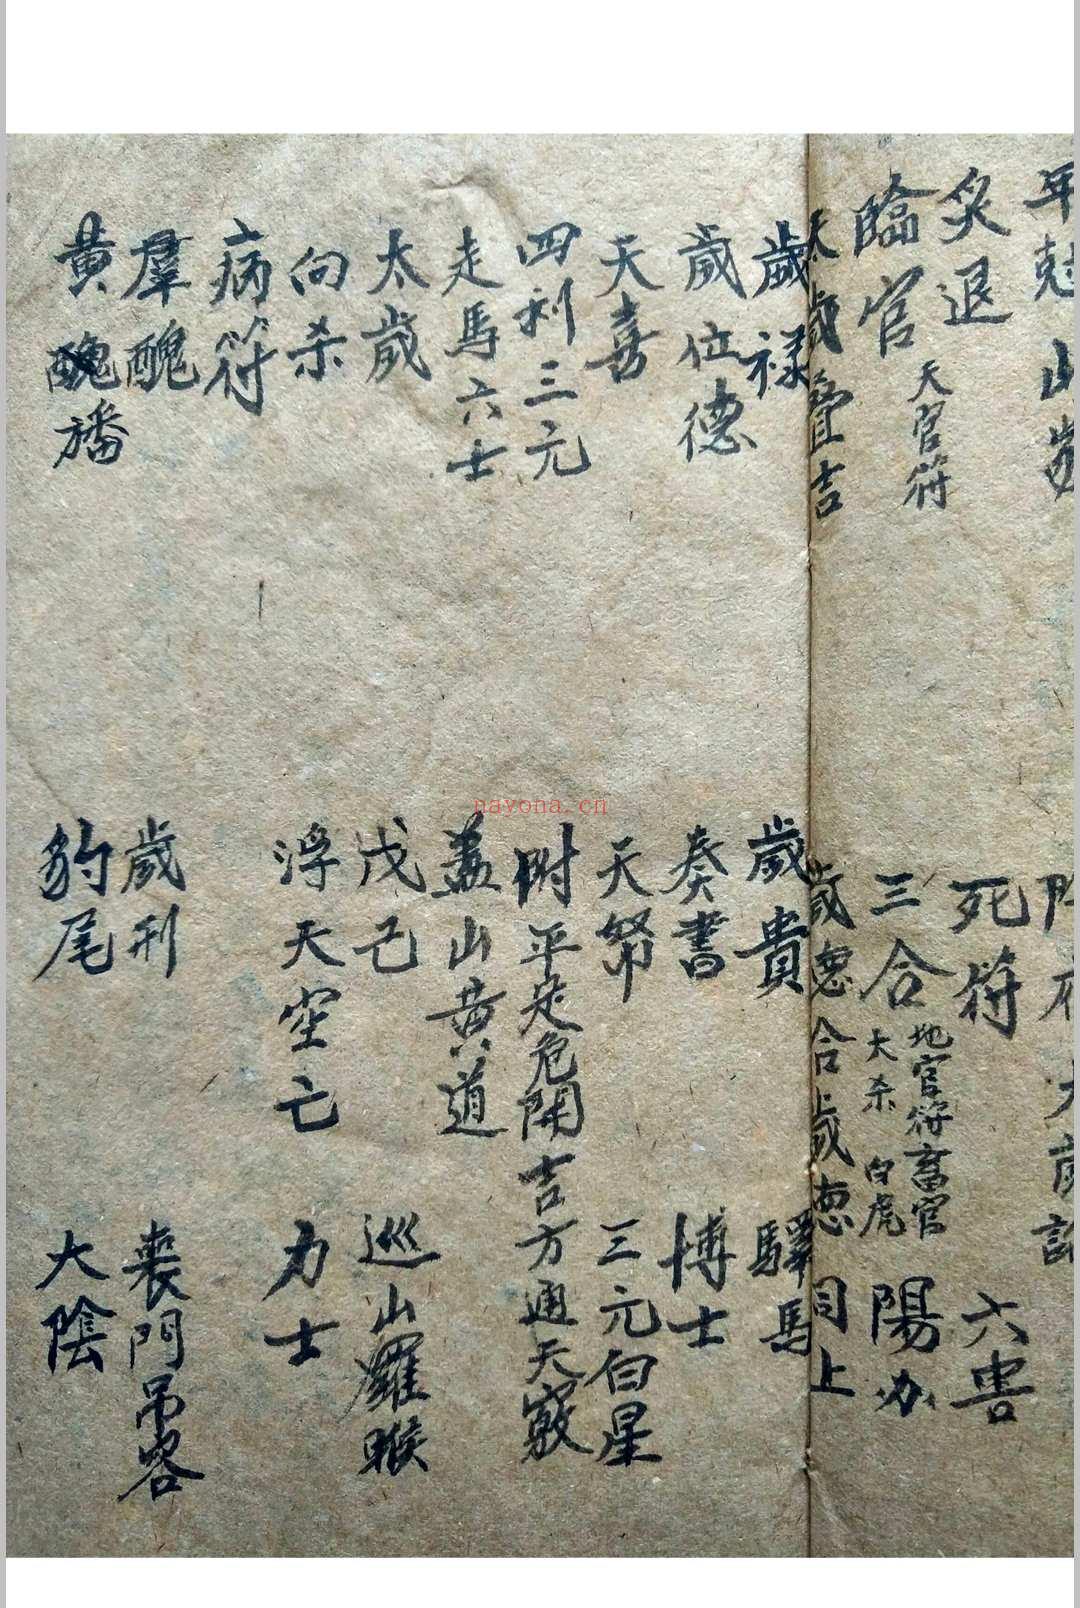 年尅山家
炙退
死符
六害
臨官
天官符
三合
地官符畜官
大杀 白虎
陽刃
太歲疊吉
歲德合歲德
同上
歲禄
歲貴
驛馬
歲位德
奏書
博士
天喜
天帑
三元白星
四利三元
附平定危開吉方通天竅
走馬六士
蓋山黄道
太歲
戊己
巡山羅睺
向杀
浮天空亡
力士
病符
羣醜
歲刑
喪門吊客
黄旛
豹尾
大陰
nayona.cn